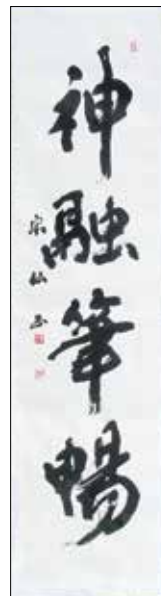 神融筆暢
宗仙書